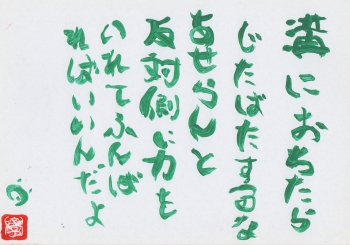 溝におちたら
じたばたするな
あせらんと
反対側に力を
いれてふんば
ればいいんだよ